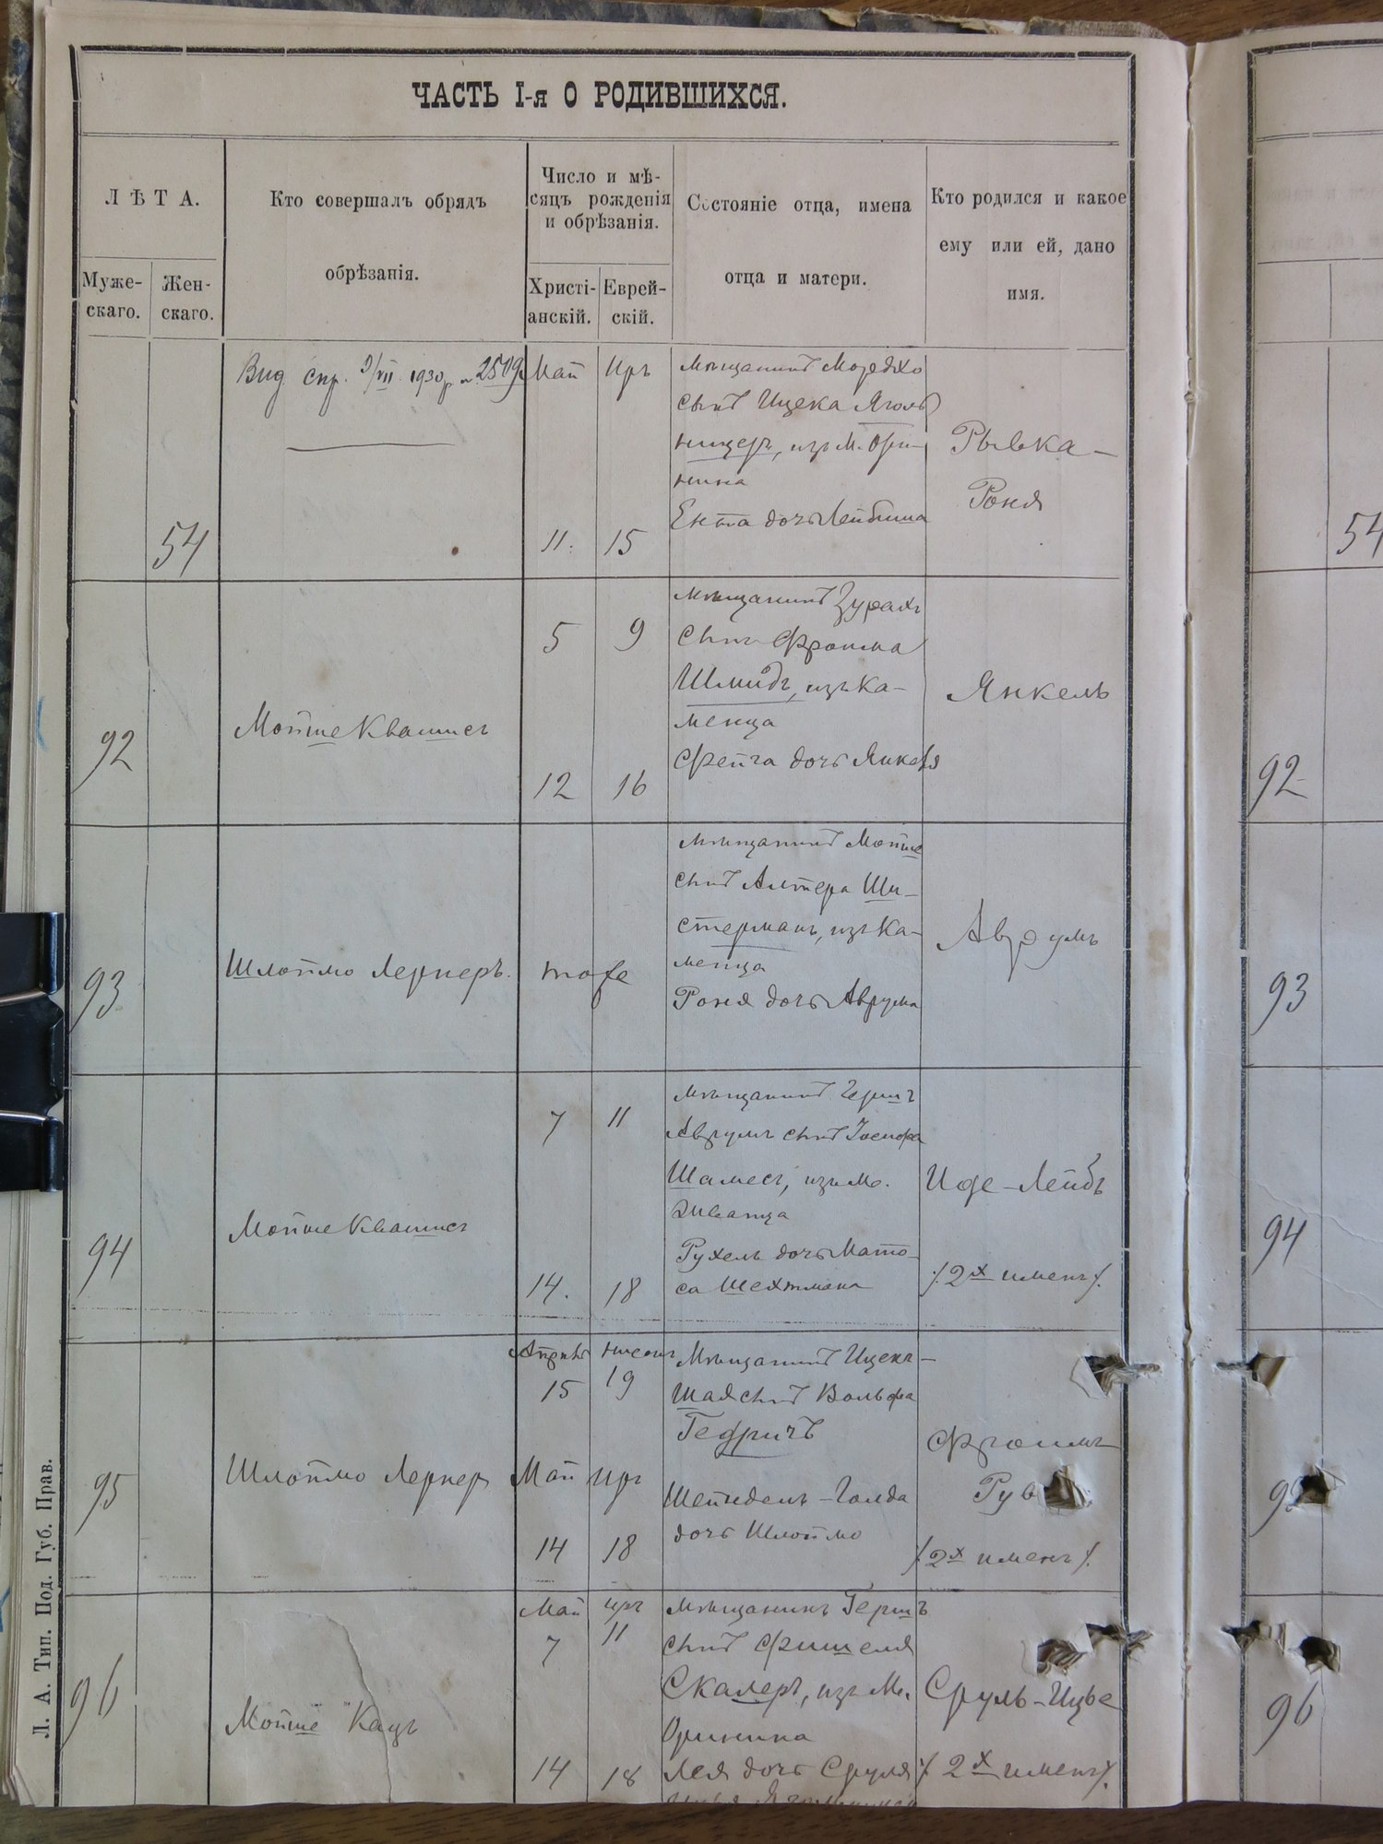 ЧАСТЬ I-я О РОДИВШИХСЯ.
ЛѢТА.
Муже-
скаго.
Жен-
скаго.
Кто совершалъ обрядъ
обрѣзанія.
Число и мѣ-
сяцъ рожденія
и обрѣзанія.
Христі-
анскій.
Еврей-
скій.
Состояніе отца, имена
отца и матери.
Кто родился и какое
ему или ей, дано
имя.
54
Вид. спр. 9/VII 1930 р. 2509
Май Иръ
11. 15
Мѣщанинъ Мордхо
сынъ Ицека Яголь
ницеръ, изъ м. Ори-
нина
Ента дочь Лейбиша
Рывка-
Роня
54
92
Мойше Квашисъ
5 9
12 16
Мѣщанинъ Зурахъ
сынъ Фроима
Шмидъ, изъ Ка-
менца
Фейга дочь Янкеля
Янкель
92
93
Шлоймо Лернеръ.
тоже
Мѣщанинъ Мойше
сынъ Алтера Ши-
стерманъ, изъ Ка-
менца
Роня дочь Аврума
Аврумъ
93
94
Мойше Квашисъ
7 11
14. 18
Мѣщанинъ Гершъ
Аврумъ сынъ Іосифа
Шамесъ, изъ м.
Жванца
Рухель дочь Мато-
са Шехтмана
Иде-Лейбъ
/.2х именъ/.
94
95
Шлоймо Лернеръ
Апрѣль Нисонъ
15 19
Май Иръ
14 18
Мѣщанинъ Ицекъ-
Шая сынъ Вольфа
Гедричъ
Шейндель-Голда
дочь Шлоймо
Фроимъ
Рув
/2х именъ/.
9
96
Мойше Кацъ
Май Иръ
7 11
14 18
Мѣщанинъ Гершъ
сынъ Фишеля
Скалеръ, изъ м.
Оринина
Лея дочь Сруля
Сруль-Ицве
/.2х именъ/.
96
Л. А. Тип. Под. Губ. Прав.